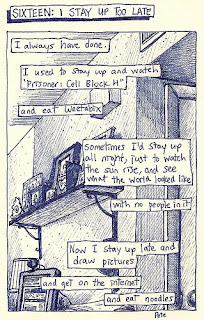 SIXTEEN: I STAY UP TOO LATE
I always have done.
I used to stay up and watch
"Prisoner: Cell Block H"
and eat Weetabix
Sometimes I'd stay up
all night, just to watch
the sun rise, and see
what the world looked like
with no people in it
Now I stay up late and
draw pictures
and get on the internet
and eat noodles